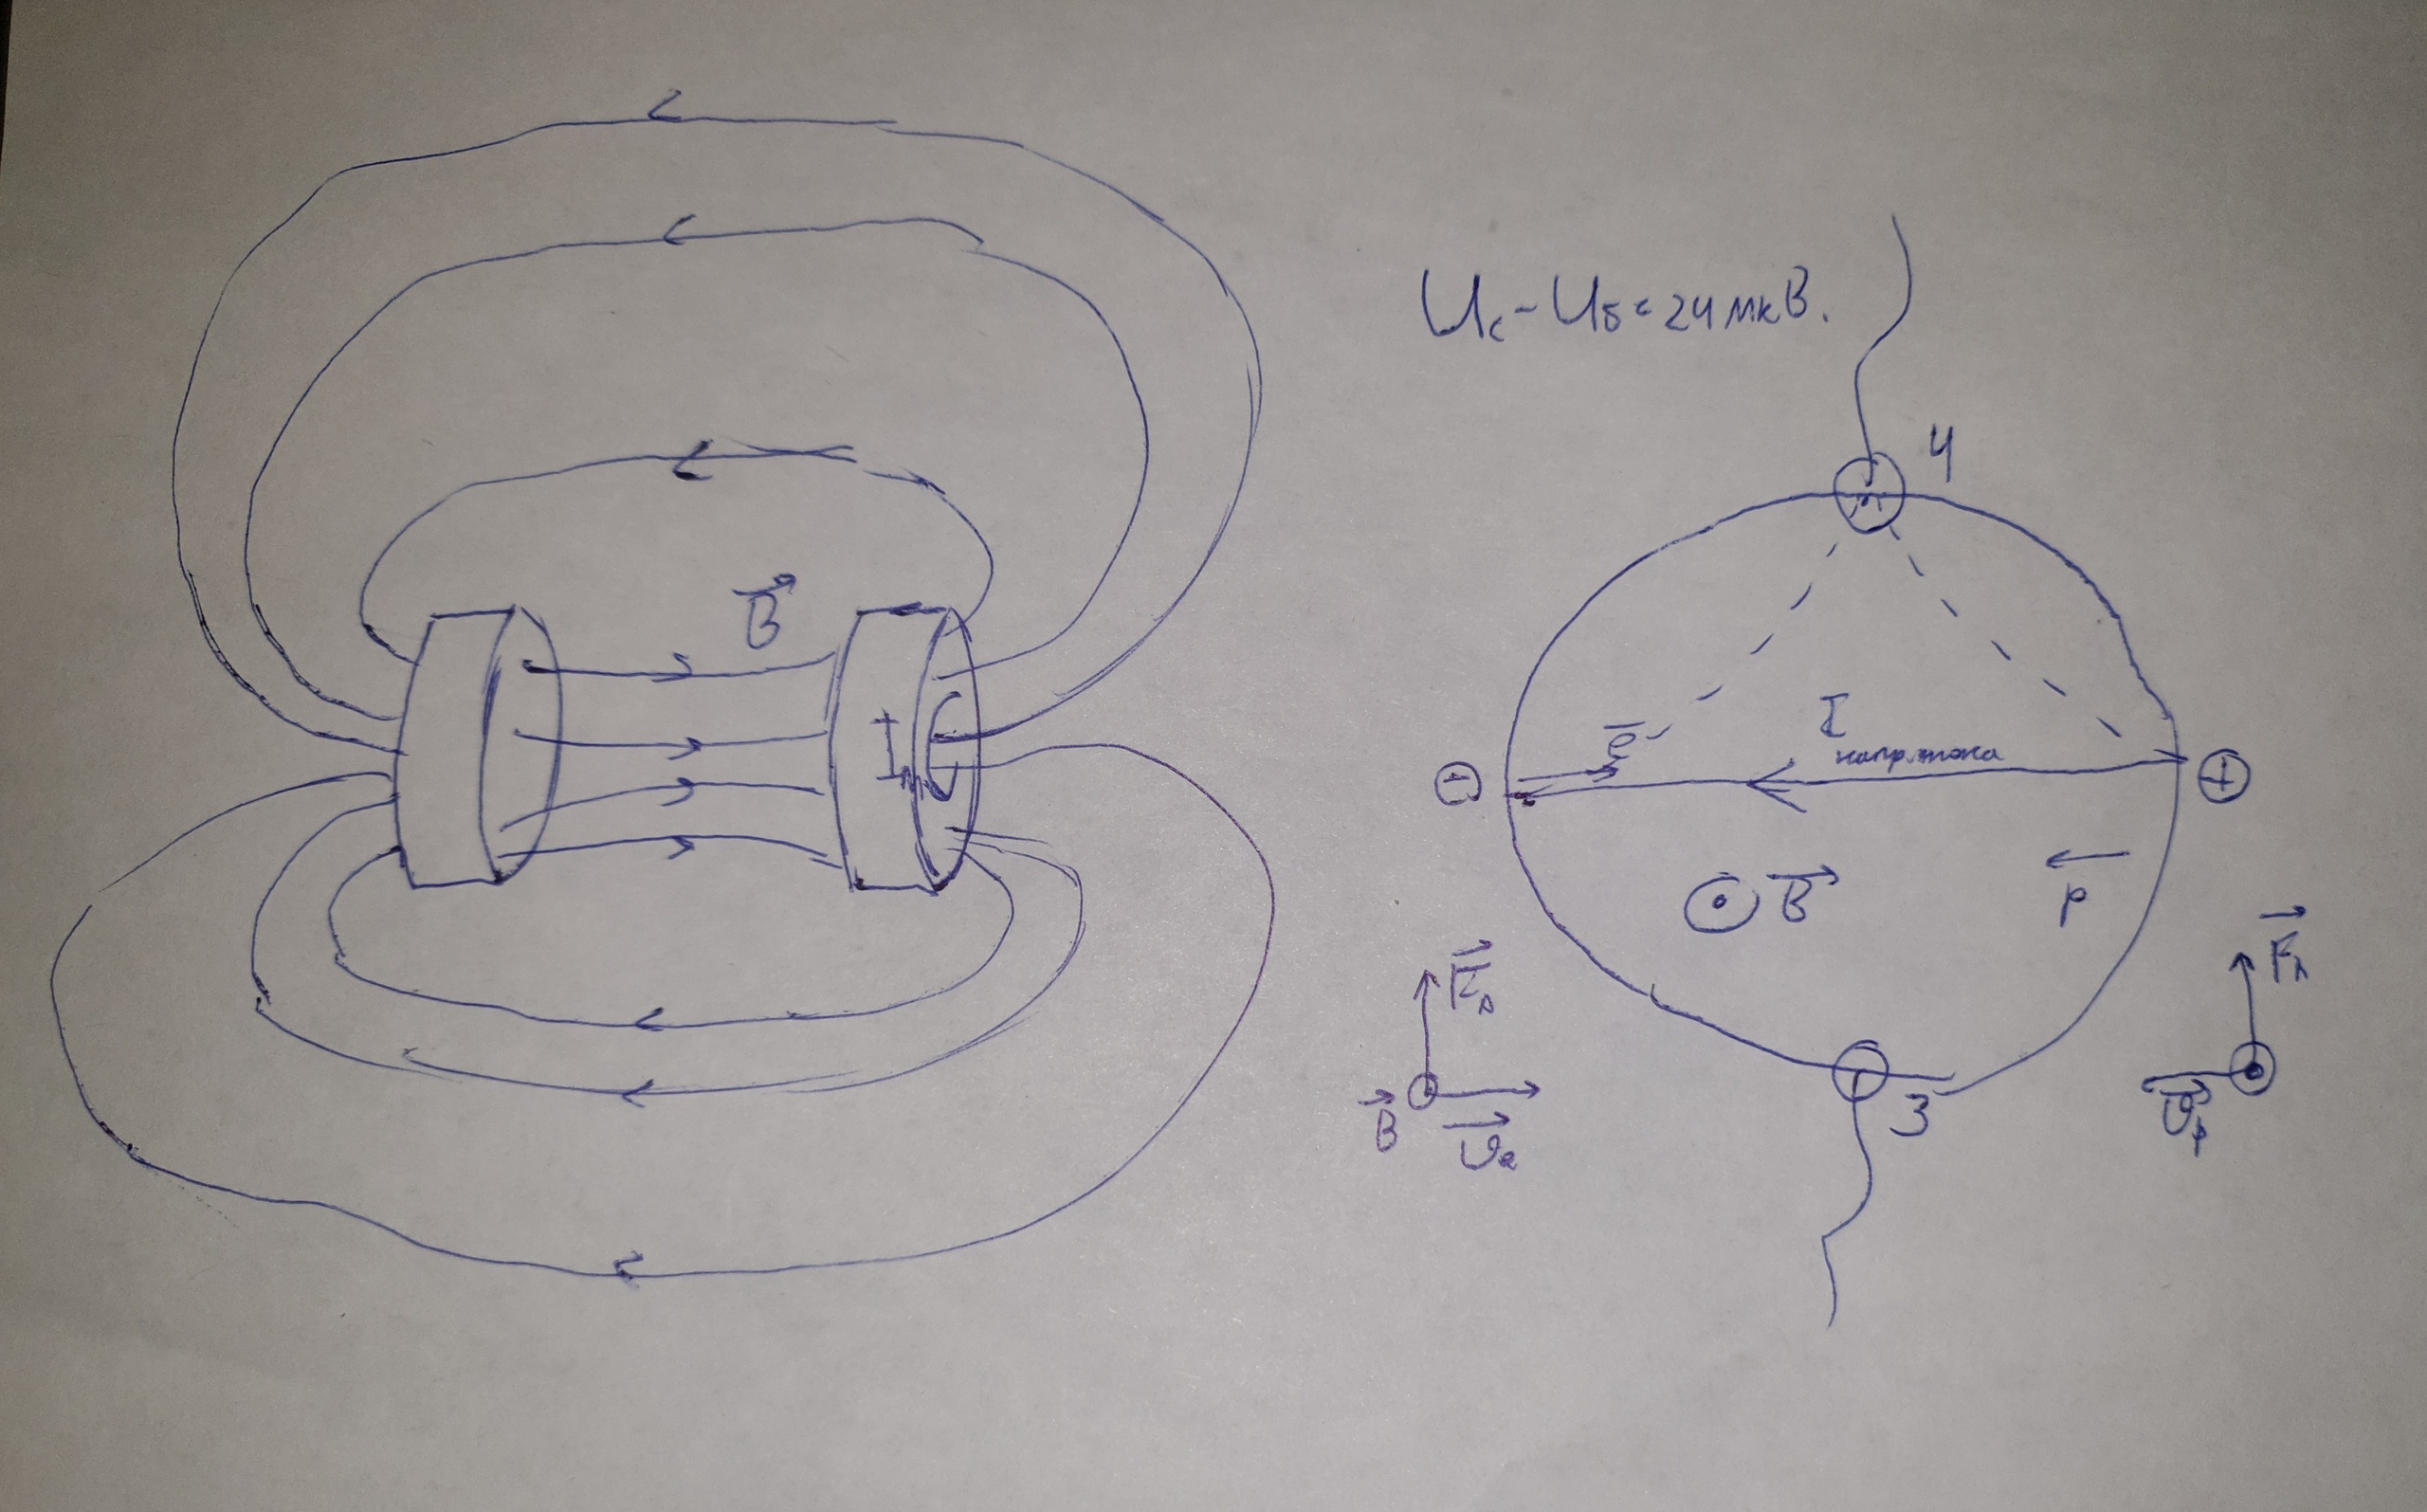 B
I
Uc - Uб = 24 мкВ.
4
e
I
напр. тока
-
+
B
p
Fл
B
Ve
3
Fл
Vp